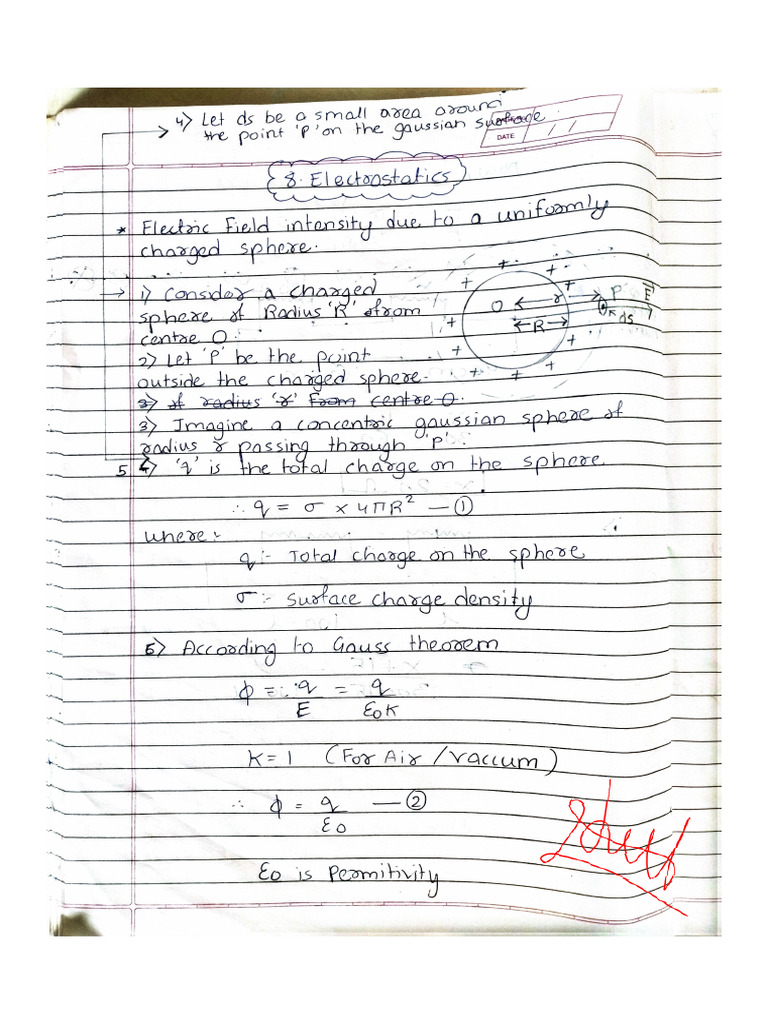 4) Let ds be a small area around
the point 'p' on the gaussian surface
DATE / /
8. Electrostatics
* Electric Field intensity due to a uniformly
charged sphere.
→ 1) Consider a charged
sphere of Radius 'R' from
centre O.
2) Let 'P' be the point
outside the charged sphere.
3) of radius 'r' From centre O.
3) Imagine a concentric gaussian sphere of
radius r passing through 'p'.
5 4) 'q' is the total charge on the sphere
∴ q = σ × 4πR² — ①
where:-
q :- Total charge on the sphere
σ :- Surface charge density
6) According to Gauss theorem
ϕ = q/E = q/ε0K
K = 1 (For Air / vaccum)
∴ ϕ = q/ε0 — ②
ε0 is Permitivity
+ + + + + + + + + + +
O r P E
R ds